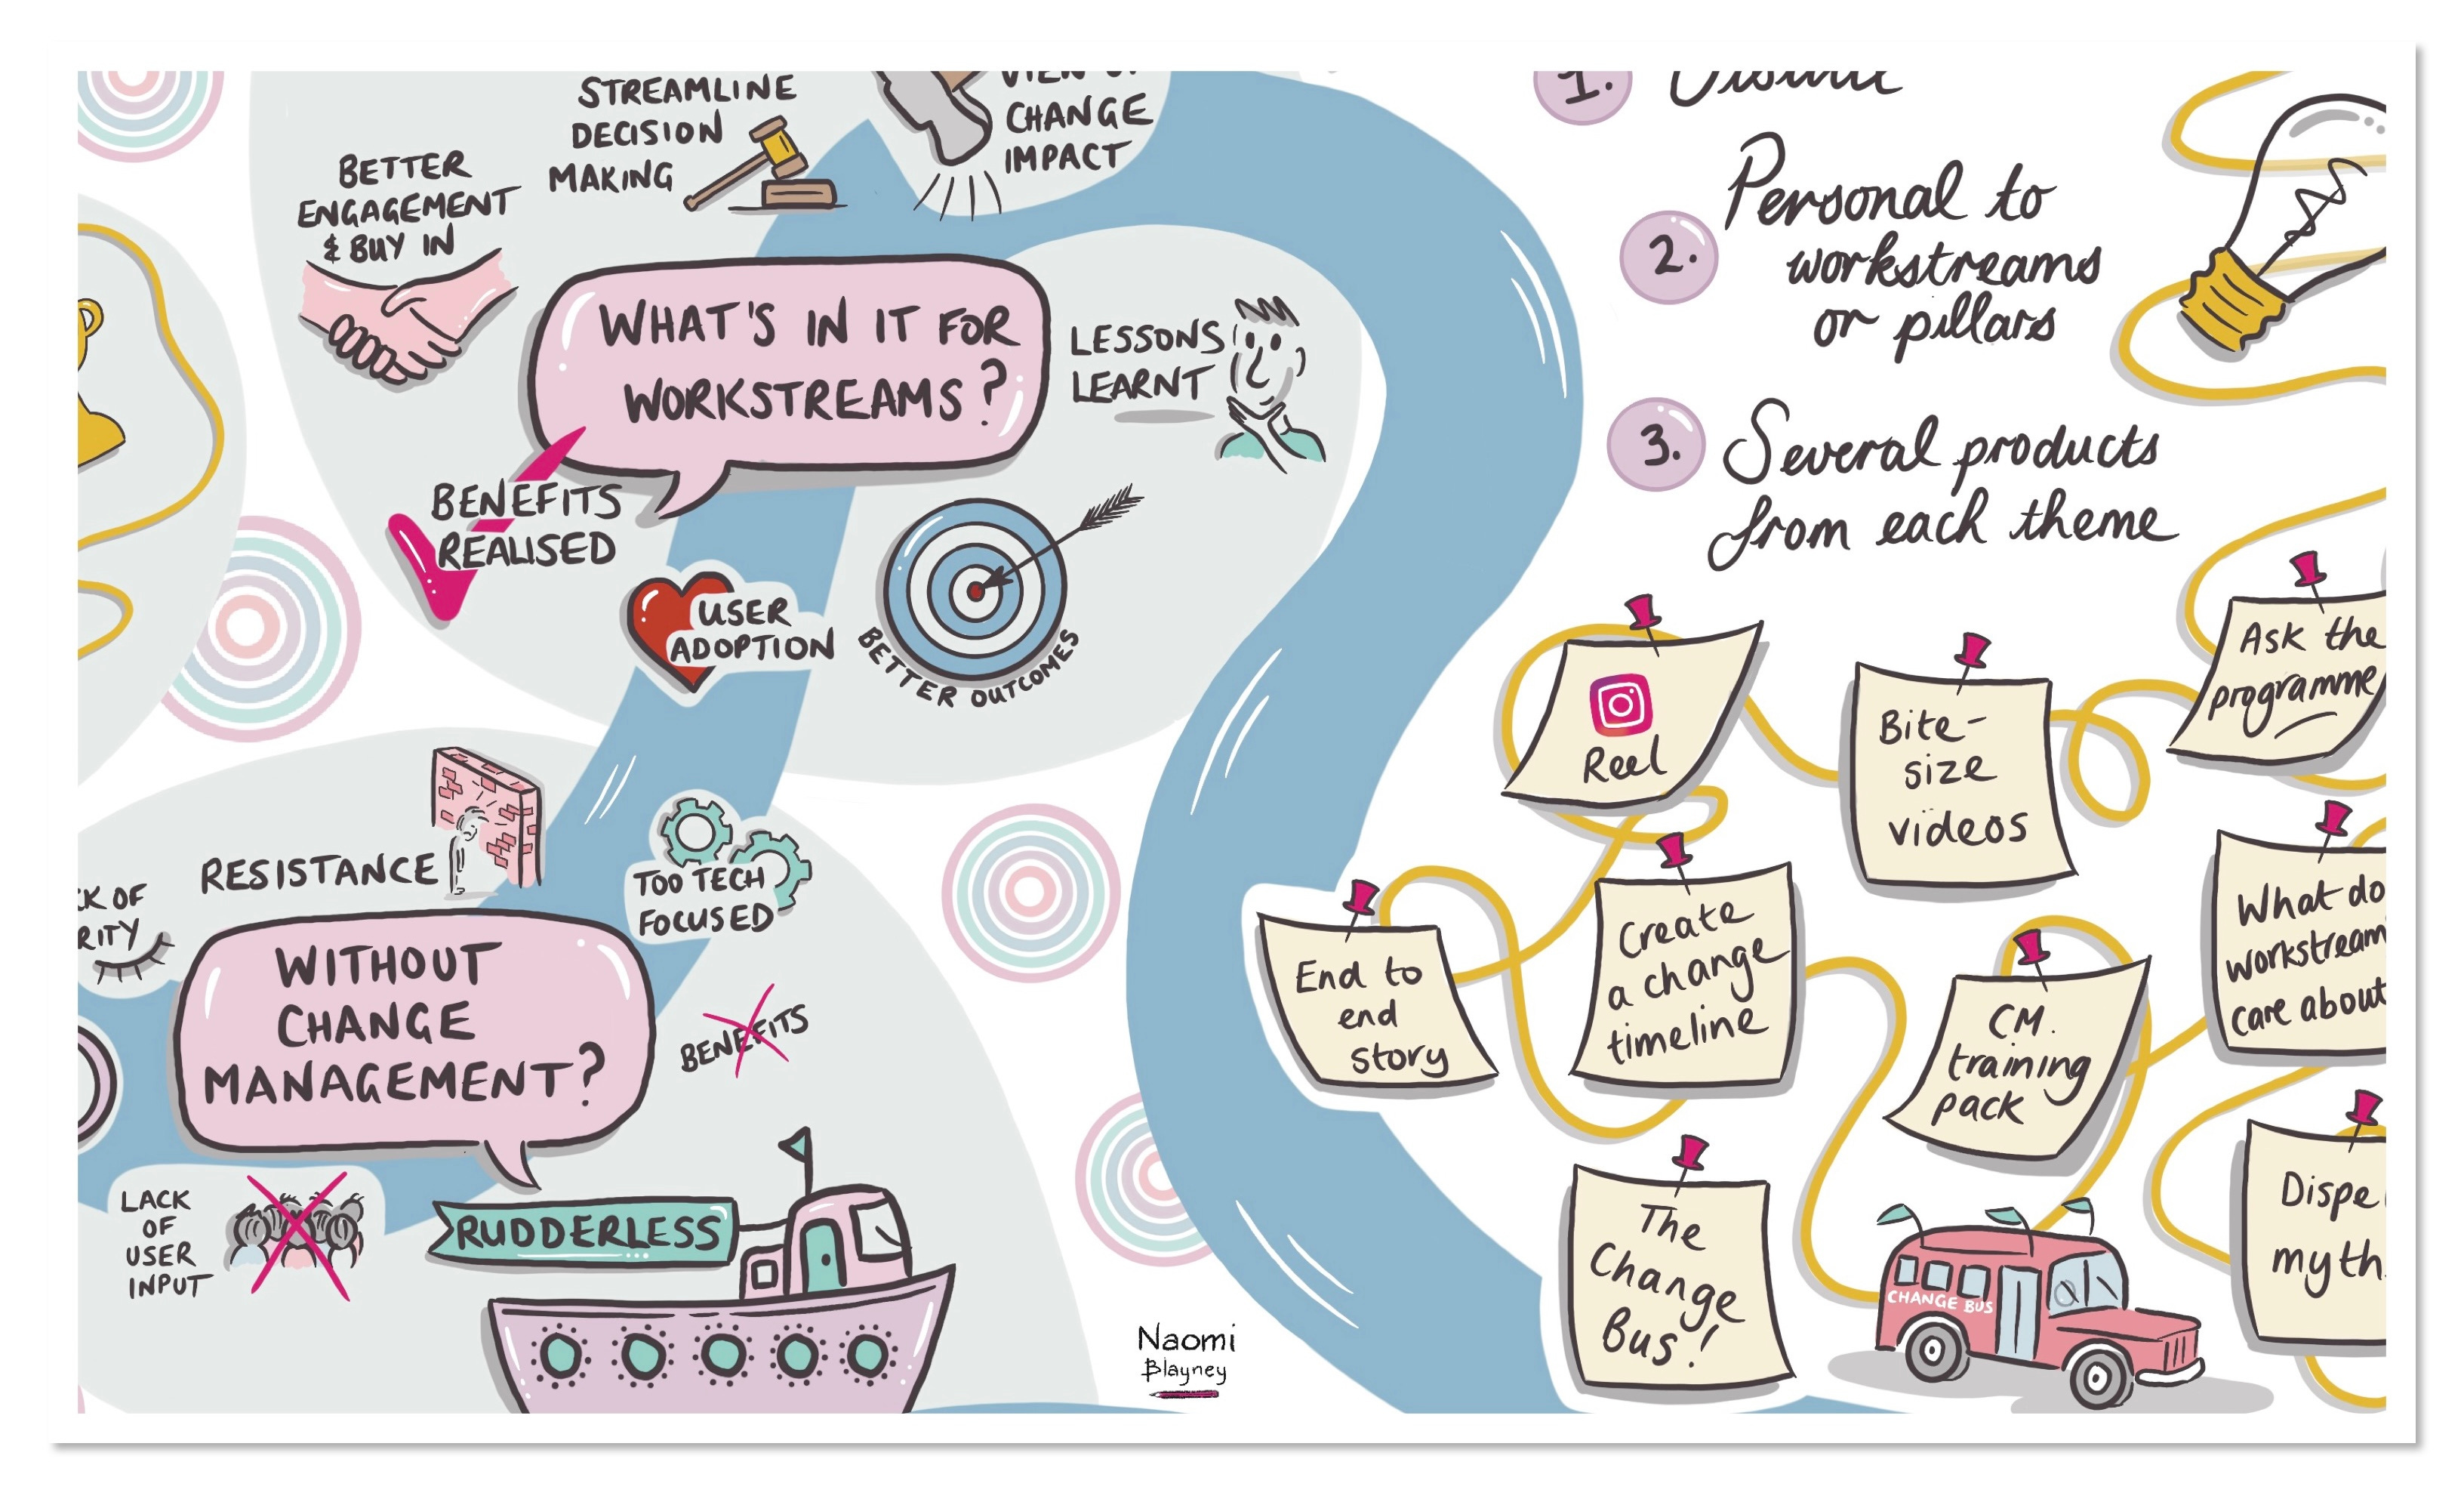 STREAMLINE
DECISION
MAKING
CHANGE
IMPACT
BETTER
ENGAGEMENT
& BUY IN
WHAT'S IN IT FOR
WORKSTREAMS?
LESSONS
LEARNT
BENEFITS
REALISED
USER
ADOPTION
BETTER OUTCOMES
RESISTANCE
TOO TECH
FOCUSED
CK OF
RITY
WITHOUT
CHANGE
MANAGEMENT?
BENEFITS
LACK
OF
USER
INPUT
RUDDERLESS
Naomi
Blayney
1.
2. Personal to
workstreams
or pillars
3. Several products
from each theme
Reel
Bite-
size
videos
Ask the
programme
End to
end
story
Create
a change
timeline
CM.
training
pack
What do
workstream
care about
The
Change
Bus!
CHANGE BUS
Dispe
myth